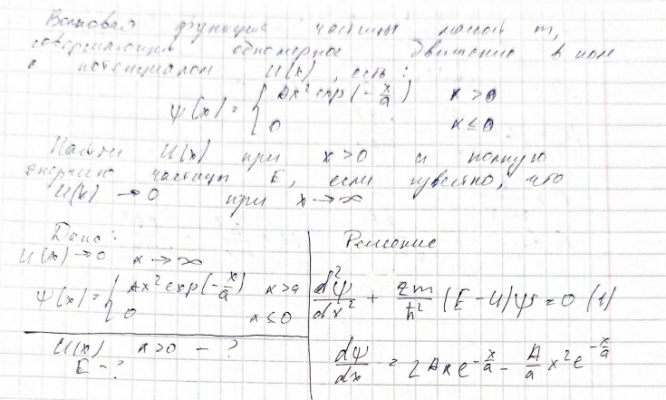 Волновая функция частицы массой m,
совершающей одномерное движение в поле
с потенциалом U(x), есть:
ψ(x) = { Ax² exp(-x/a) x > 0
0 x ≤ 0
Найти U(x) при x > 0 и полную
энергию частицы E, если известно, что
U(x) → 0 при x → ∞
Дано:
U(x) → 0 x → ∞
ψ(x) = { Ax² exp(-x/a) x > 0
0 x ≤ 0
U(x) x > 0 - ?
E - ?
Решение
d²ψ/dx² + 2m/ħ² (E - U)ψ = 0 (1)
dψ/dx = 2Axe^(-x/a) - A/a x² e^(-x/a)